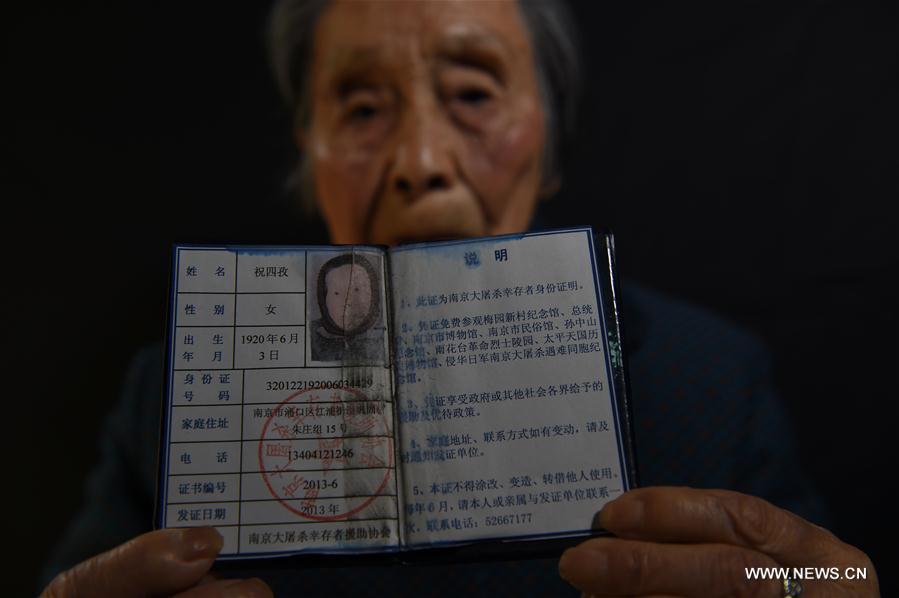 姓 名 祝四孜
性 别 女
出 生 1920年6月
年 月 3日
身 份 证 320122192006034429
号 码
家庭住址 南京市浦口区江浦街道
朱庄组15号
电 话 13404121246
证书编号 2013-6
发证日期 2013年
南京大屠杀幸存者援助协会
说 明
1、此证为南京大屠杀幸存者身份证明。
2、凭证免费参观梅园新村纪念馆、总统
南京市博物馆、南京市民俗馆、孙中山
纪念馆、雨花台革命烈士陵园、太平天国历
史博物馆、侵华日军南京大屠杀遇难同胞纪
念馆。
3、凭证享受政府或其他社会各界给予的
援助及优待政策。
4、家庭地址、联系方式如有变动,请及
时通知发证单位。
5、本证不得涂改、变造、转借他人使用。
每年6月,请本人或亲属与发证单位联系一
次,联系电话:52667177
WWW.NEWS.CN